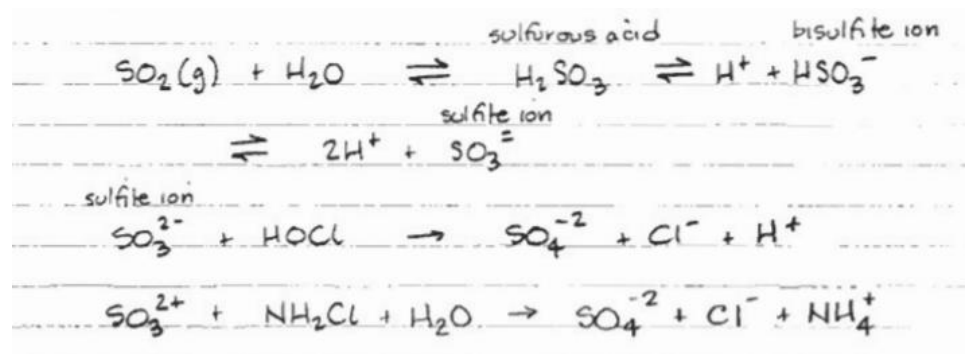 sulfurous acid bisulfite ion
SO₂(g) + H₂O ⇌ H₂SO₃ ⇌ H⁺ + HSO₃⁻
sulfite ion
⇌ 2H⁺ + SO₃⁼
sulfite ion
SO₃²⁻ + HOCl → SO₄⁻² + Cl⁻ + H⁺
SO₃²⁺ + NH₂Cl + H₂O → SO₄⁻² + Cl⁻ + NH₄⁺